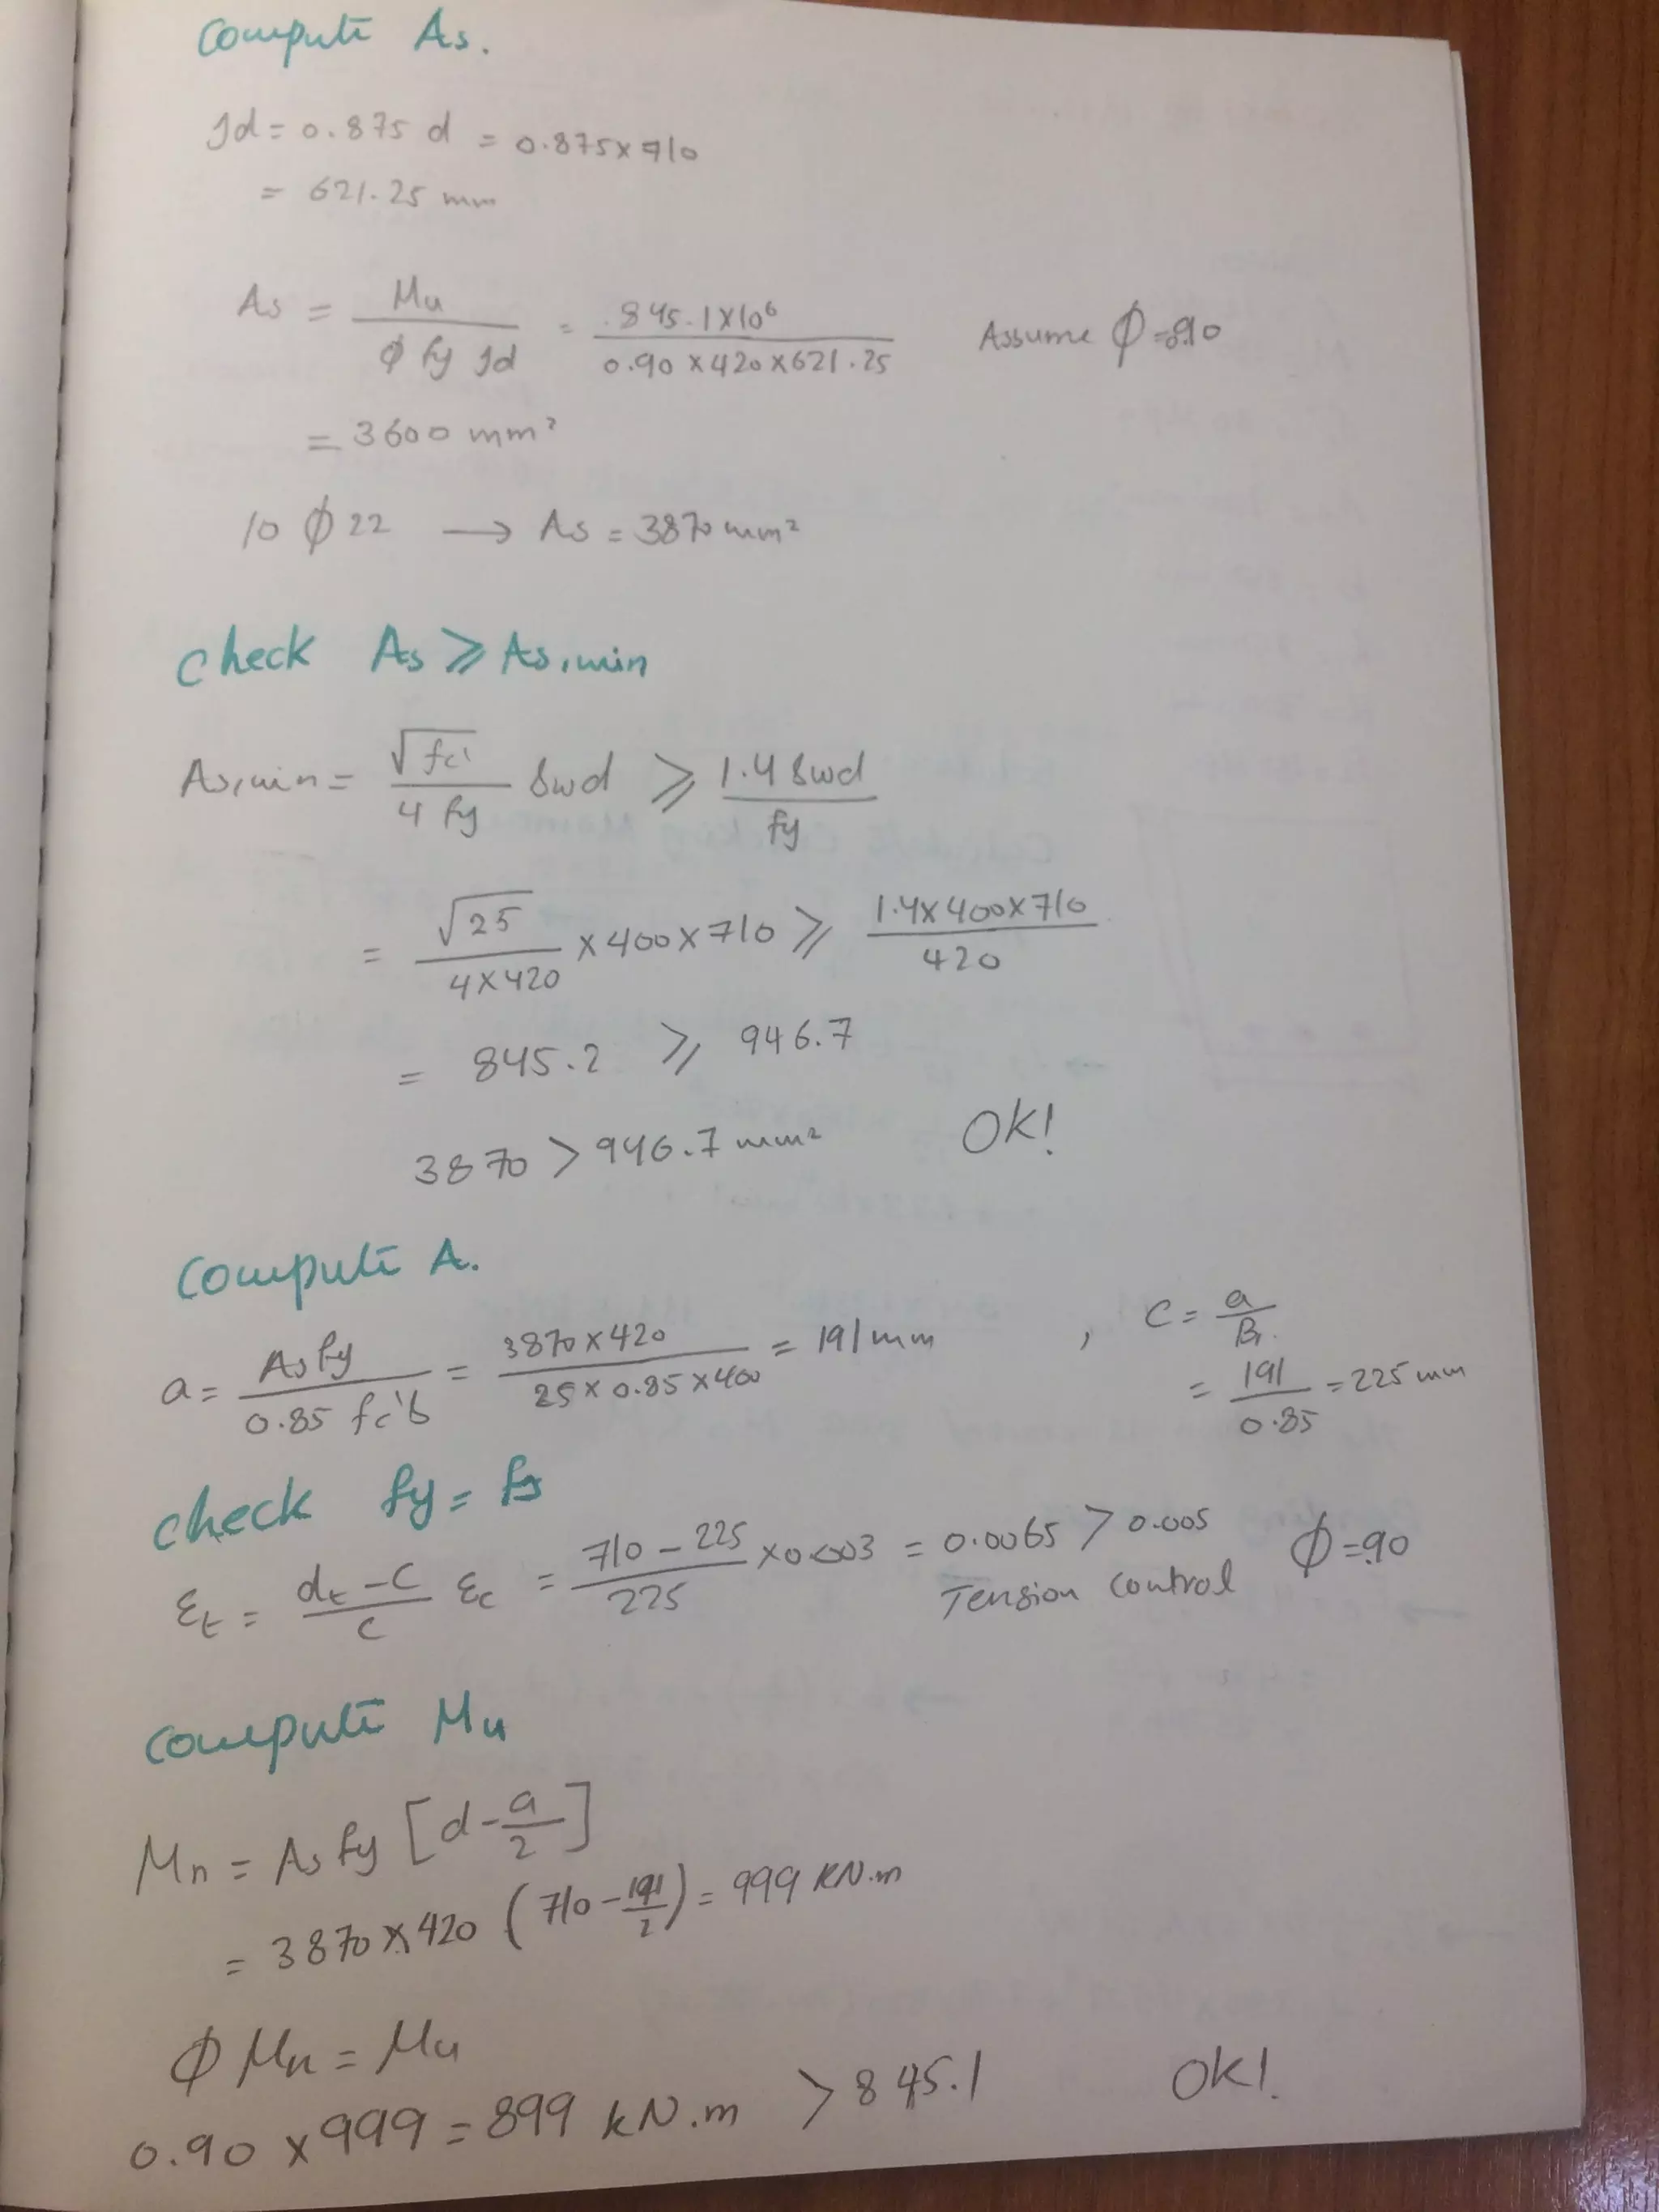 Compute As.
Jd = 0.875 d = 0.875 x 710
= 621.25 mm
As = Mu / ϕ fy Jd = 845.1 x 10⁶ / 0.90 x 420 x 621.25 Assume ϕ = 0.90
= 3600 mm²
10 ϕ 22 → As = 3870 mm²
Check As ⩾ As,min
As,min = √fc' / 4 fy bwd ⩾ 1.4 bwd / fy
= √25 / 4 x 420 x 400 x 710 ⩾ 1.4 x 400 x 710 / 420
= 845.2 ⩾ 946.7
3870 > 946.7 mm² OK!
Compute A.
a = As fy / 0.85 fc'b = 3870 x 420 / 25 x 0.85 x 400 = 191 mm , C = a / B₁.
= 191 / 0.85 = 225 mm
Check fy = fs
Ɛt = dt - C / C Ɛc = 710 - 225 / 225 x 0.003 = 0.0065 > 0.005 ϕ = .90
Tension control
Compute Mu
Mn = As fy [d - a / 2]
= 3870 x 420 (710 - 191 / 2) = 999 KN.m
ϕ Mn = Mu
0.90 x 999 = 899 kN.m > 845.1 OK!